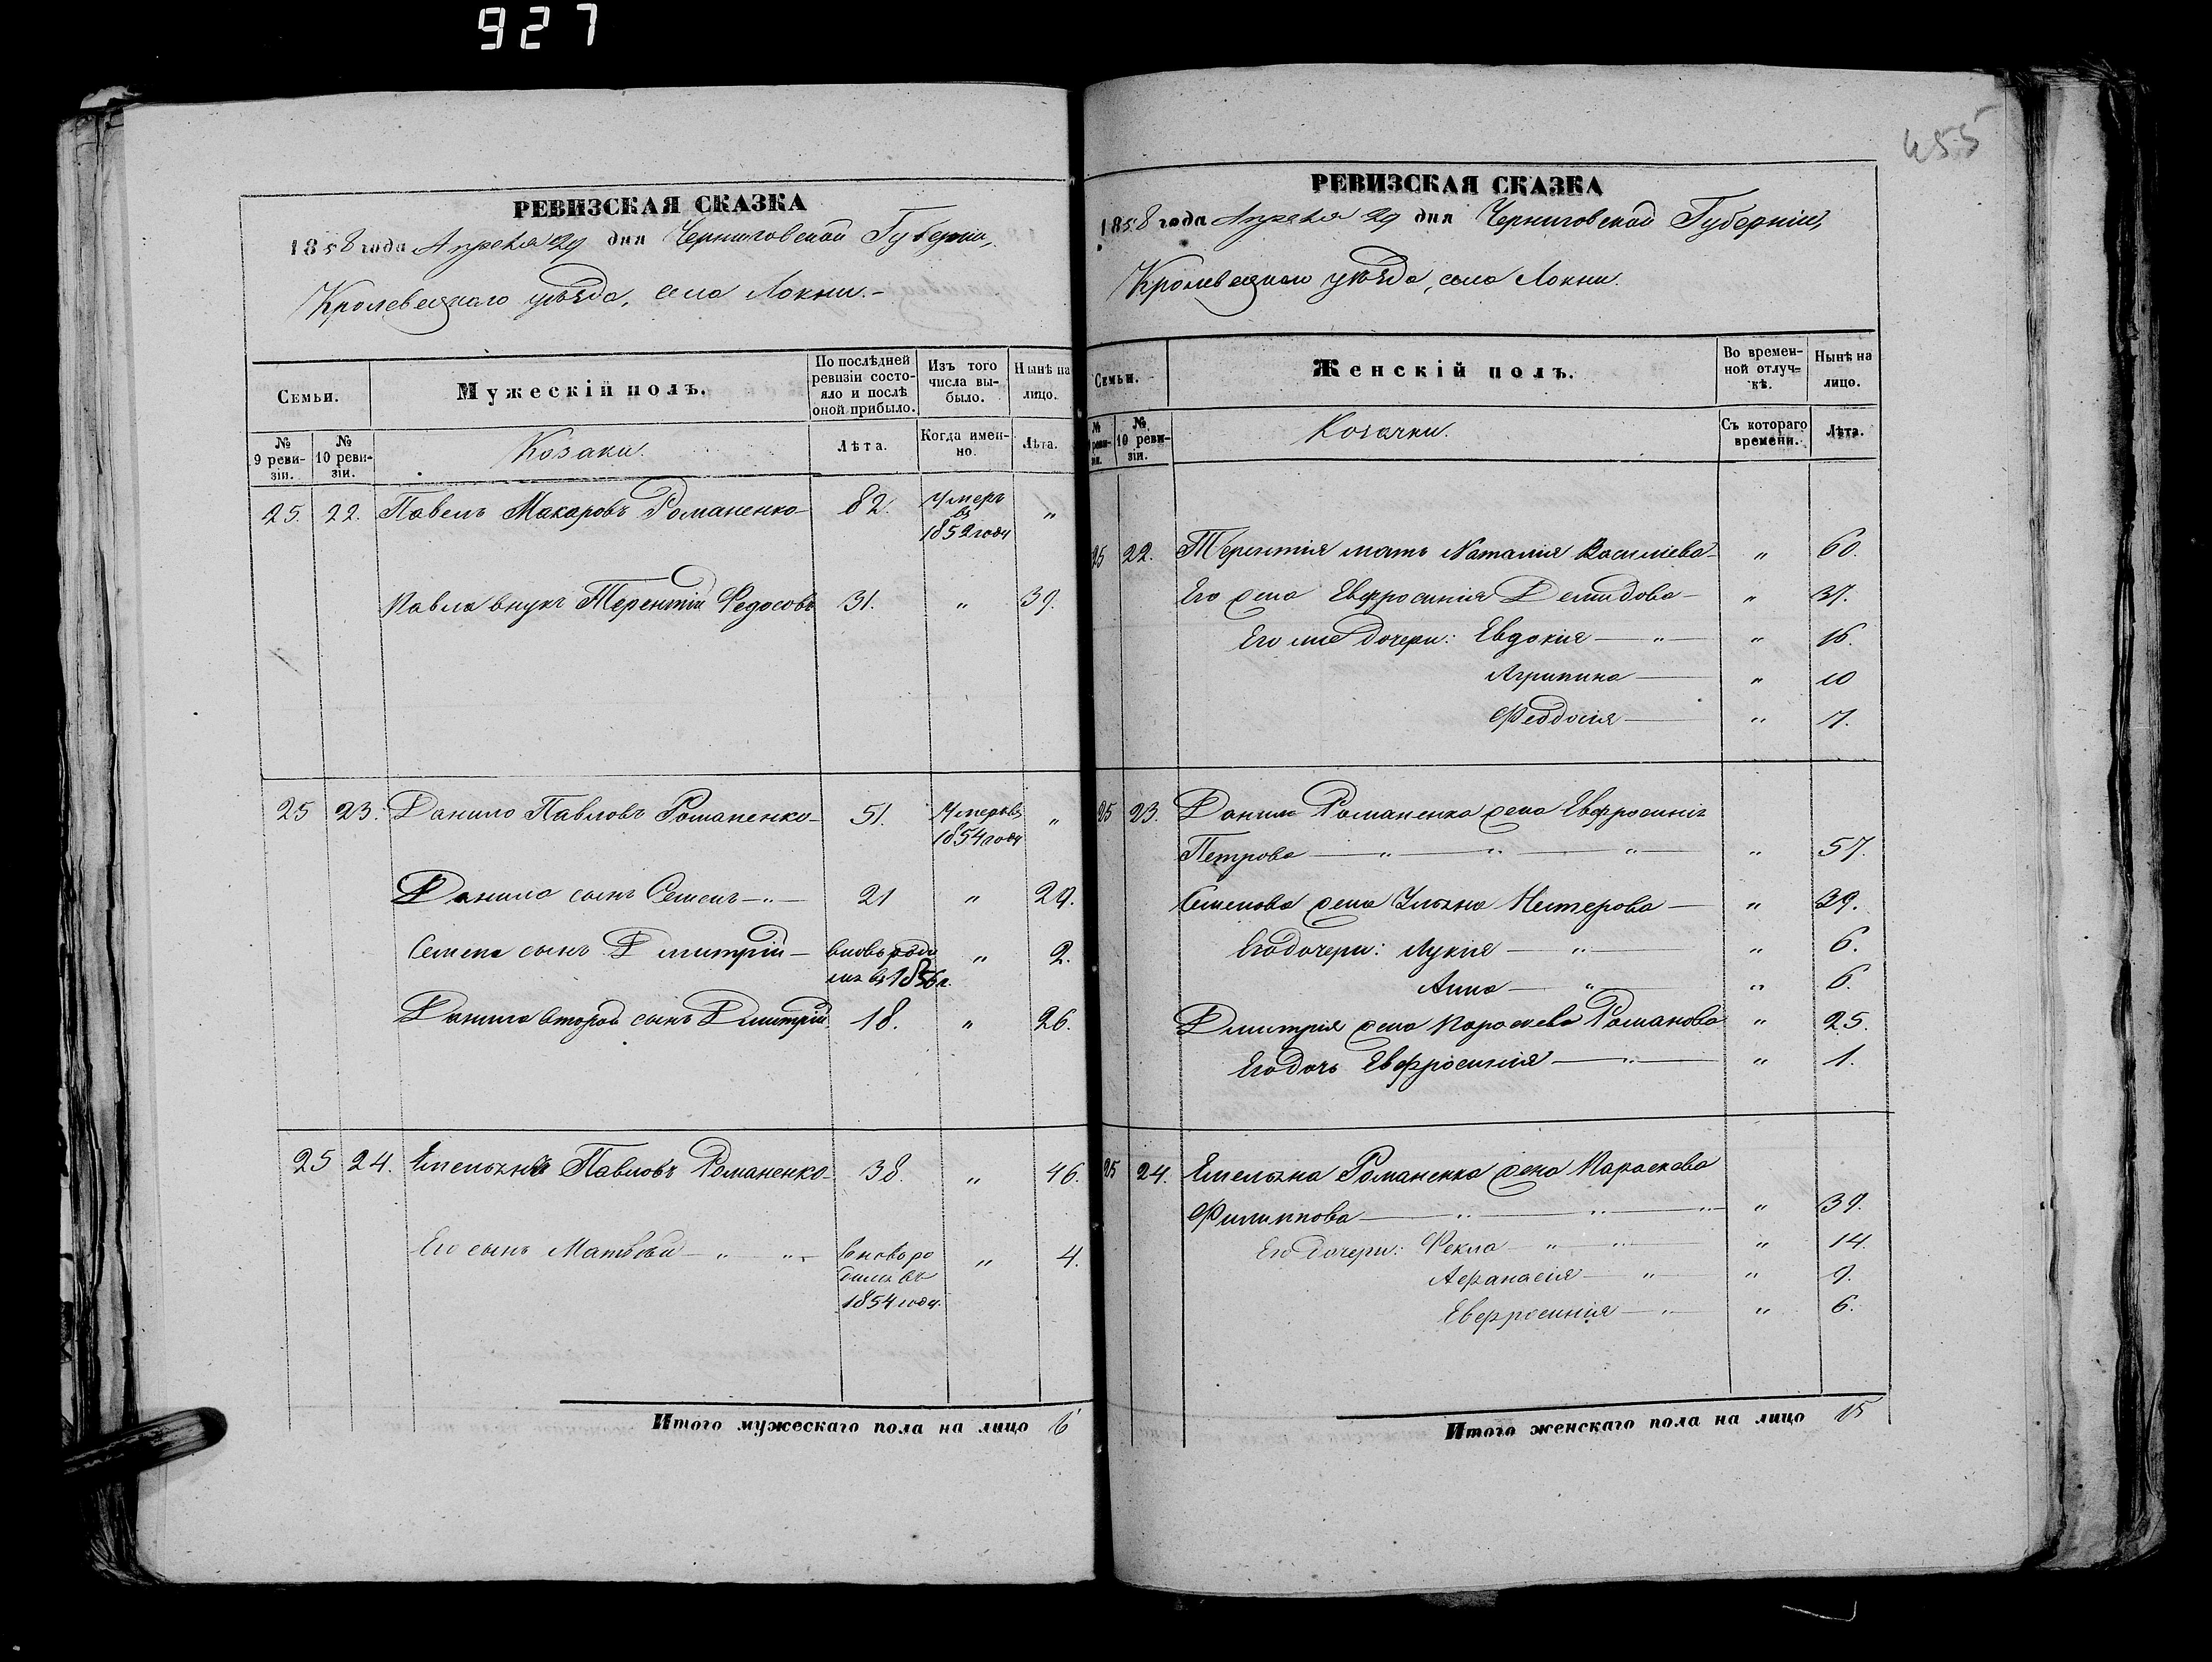 927
455
РЕВИЗСКАЯ СКАЗКА
1858 года Апреля 29 дня Черниговской Губерніи,
Кролевецкаго уѣзда, села Локни.-
Семьи.
Мужескій полъ.
По послѣдней ревизіи состояло и послѣ оной прибыло.
Изъ того числа выбыло.
Нынѣ на лицо.
№ 9 ревизіи.
№ 10 ревизіи.
Козаки.
Лѣта.
Когда именно.
Лѣта.
25. 22. Павелъ Макаровъ Романенко 82. Умеръ въ 1852 году "
Павла внукъ Терентій Федосовъ 31. " 39.
25 23. Данило Павловъ Романенко 51. Умеръ въ 1854 году "
Данила сынъ Семенъ - " - 21 " 29.
Семена сынъ Дмитрій - вновь родился въ 1856 г. " 2.
Данила второй сынъ Дмитрій 18. " 26.
25 24. Емельянъ Павловъ Романенко 38. " 46.
Его сынъ Матвѣй - " " - вновь родился въ 1854 году. " 4.
Итого мужескаго пола на лицо 6
РЕВИЗСКАЯ СКАЗКА
1858 года Апреля 29 дня Черниговской Губерніи,
Кролевецкаго уѣзда, села Локни.
Семьи.
Женскій полъ.
Во временной отлучкѣ.
Нынѣ на лицо.
№ 9 ревизіи.
№ 10 ревизіи.
Козачки.
Съ котораго времени.
Лѣта.
25 22. Терентія мать Наталія Василіева " 60.
Его жена Евфросинія Демидова " 37.
Его же дочери: Евдокія " " 16.
Агрипина " 10
Феодосія " 7.
25 23. Данила Романенка жена Евфросинія
Петрова " " " " 57.
Семенова жена Ульяна Нестерова " 29.
Его дочери: Лукія " " 6.
Анна " " 6.
Дмитрія жена Параскева Романова " 25.
Его дочь Евфросинія " " 1.
25 24. Емельяна Романенка жена Параскева
Филиппова " " " " 39.
Его дочери: Фекла " " " 14.
Афанасія " " 9.
Евфросинія " " 6.
Итого женскаго пола на лицо 15